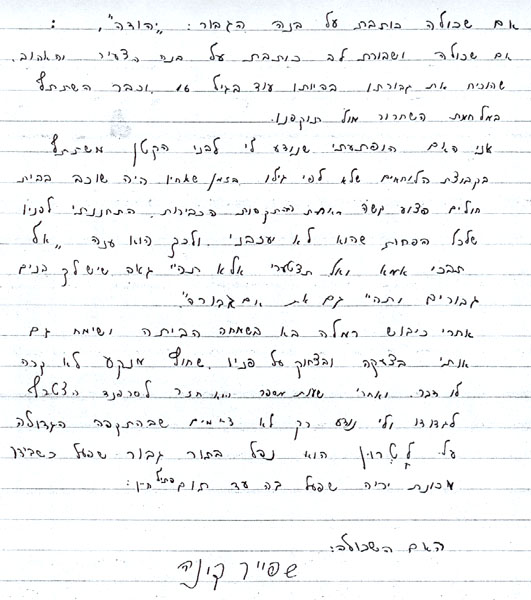 אם שכולה כותבת על בנה הגבור: "יהודה", :
אם שכולה ושבורת לב כותבת על בנה הצעיר והאהוב.
שהוכיח את גבורתו בהיותו עוד בגיל וכבר השתתף
במלחמת השחרור מול תוקפנו.
אני האם הופתעתי שנודע לי לבני הקטן משתתף
בקבוצת הלוחמים שלא לפי גילו. בזמן שאחיו היה שוכב בבית
חולים פצוע קשה מאחת ההתקפות הכבירות. התחננתי לפניו
שלכל הפחות שהוא לא עזבני. ולכך הוא ענה "אל
תבכי אמא ואל תצטערי אלא תהיי גאה שיש לך בנים
גבורים ותהיי גם את אם גבורה".
אחרי כיבוש רמלה בא בשמחה הביתה ושימח גם
אותי בצעקה ובצחוק על פניו. שחוץ מנקע לא קרה
לו דבר. ואחרי שעות מספר הוא חזר לסרפנד הצטרף
לגדודו ולי נודע רק לא שבהתקפה הגדולה
על לטרון הוא נפל בתור גבור שפעל כשבידו
מכונת יריה שפעל בה עד תום
האם השכולה:
שפייר קינה